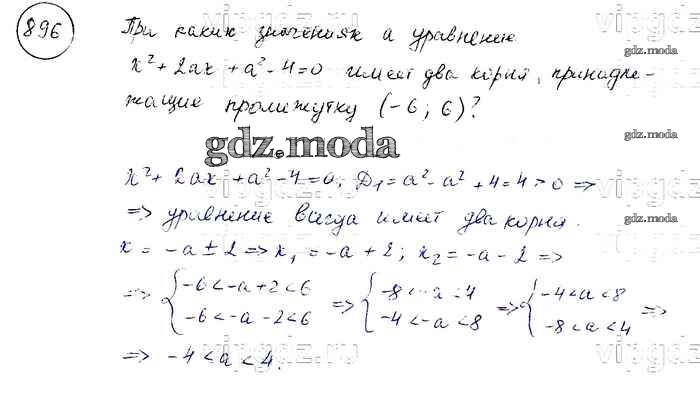 896
При каких значениях a уравнение
x² + 2ax + a² - 4 = 0 имеет два корня, принадле-
жащие промижутку (-6; 6)?
gdz.moda
x² + 2ax + a² - 4 = 0; D₁ = a² - a² + 4 = 4 > 0 =>
=> уравнение всегда имеет два корня.
x = -a ± 2 => x₁ = -a + 2; x₂ = -a - 2 =>
=> { -6 < -a + 2 < 6 => { -8 < -a < 4 => { -4 < a < 8 =>
-6 < -a - 2 < 6 -4 < -a < 8 -8 < a < 4
=> -4 < a < 4.
vipgdz.ru
gdz.moda